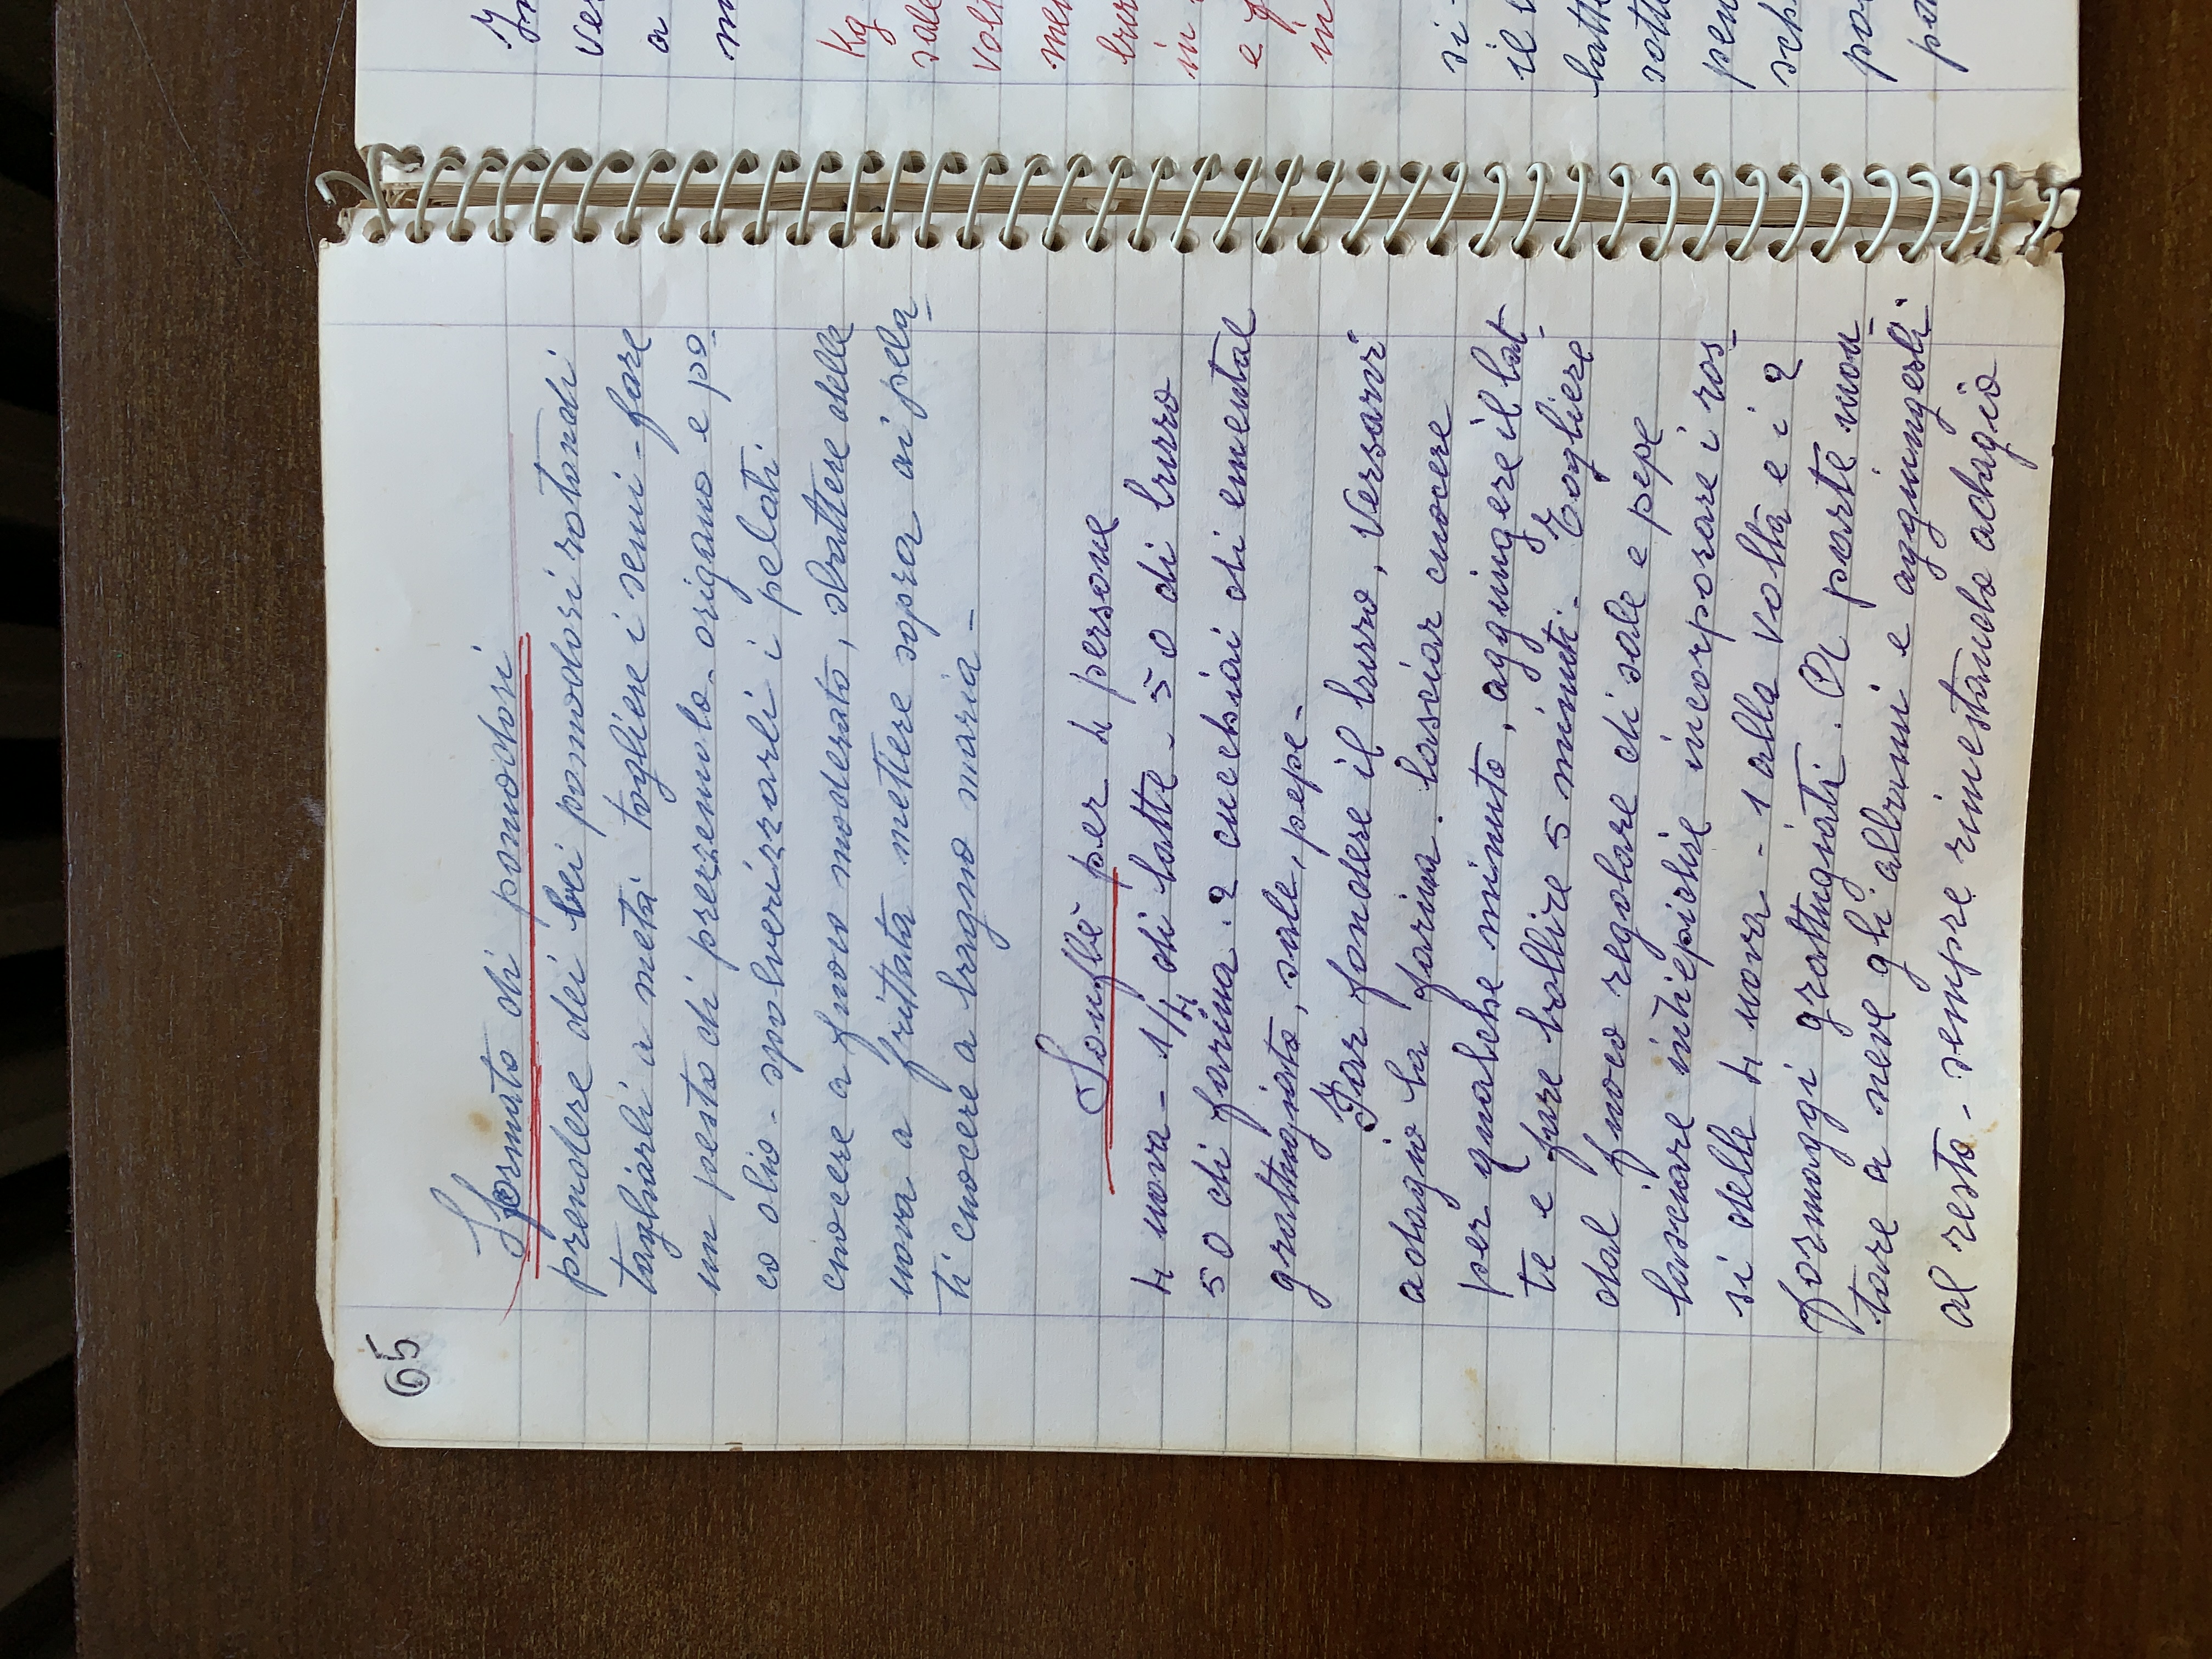 65
Sformato di pomodori
prendere dei bei pomodori rotondi
tagliarli a metà togliere i semi - fare
un pesto di prezzemolo - origano e po-
co olio - spolverizzarli i pelati
cuocere a fuoco moderato, sbattere delle
uova a frittata mettere sopra ai pela-
ti cuocere a bagno maria -
Souflè per 4 persone
4 uova - 1/4 di latte - 50 di burro
50 di farina . 2 cucchiai di emental
grattugiato, sale, pepe -
Far fondere il burro, versarvi
adagio la farina. lasciar cuocere
per qualche minuto, aggiungere il lat-
te e fare bollire 5 minuti. Togliere
dal fuoco regolare di sale e pepe
lasciare intiepidire incorporare i ros-
si delle 4 uova - 1 alla volta e i 2
formaggi grattugiati. A parte mon-
tare a neve gli albumi e aggiungerli
al resto - sempre rimestando adagio
ver
a
Kg
sale
volt
in
e f
in
si
il
latte
sott
pen
sch